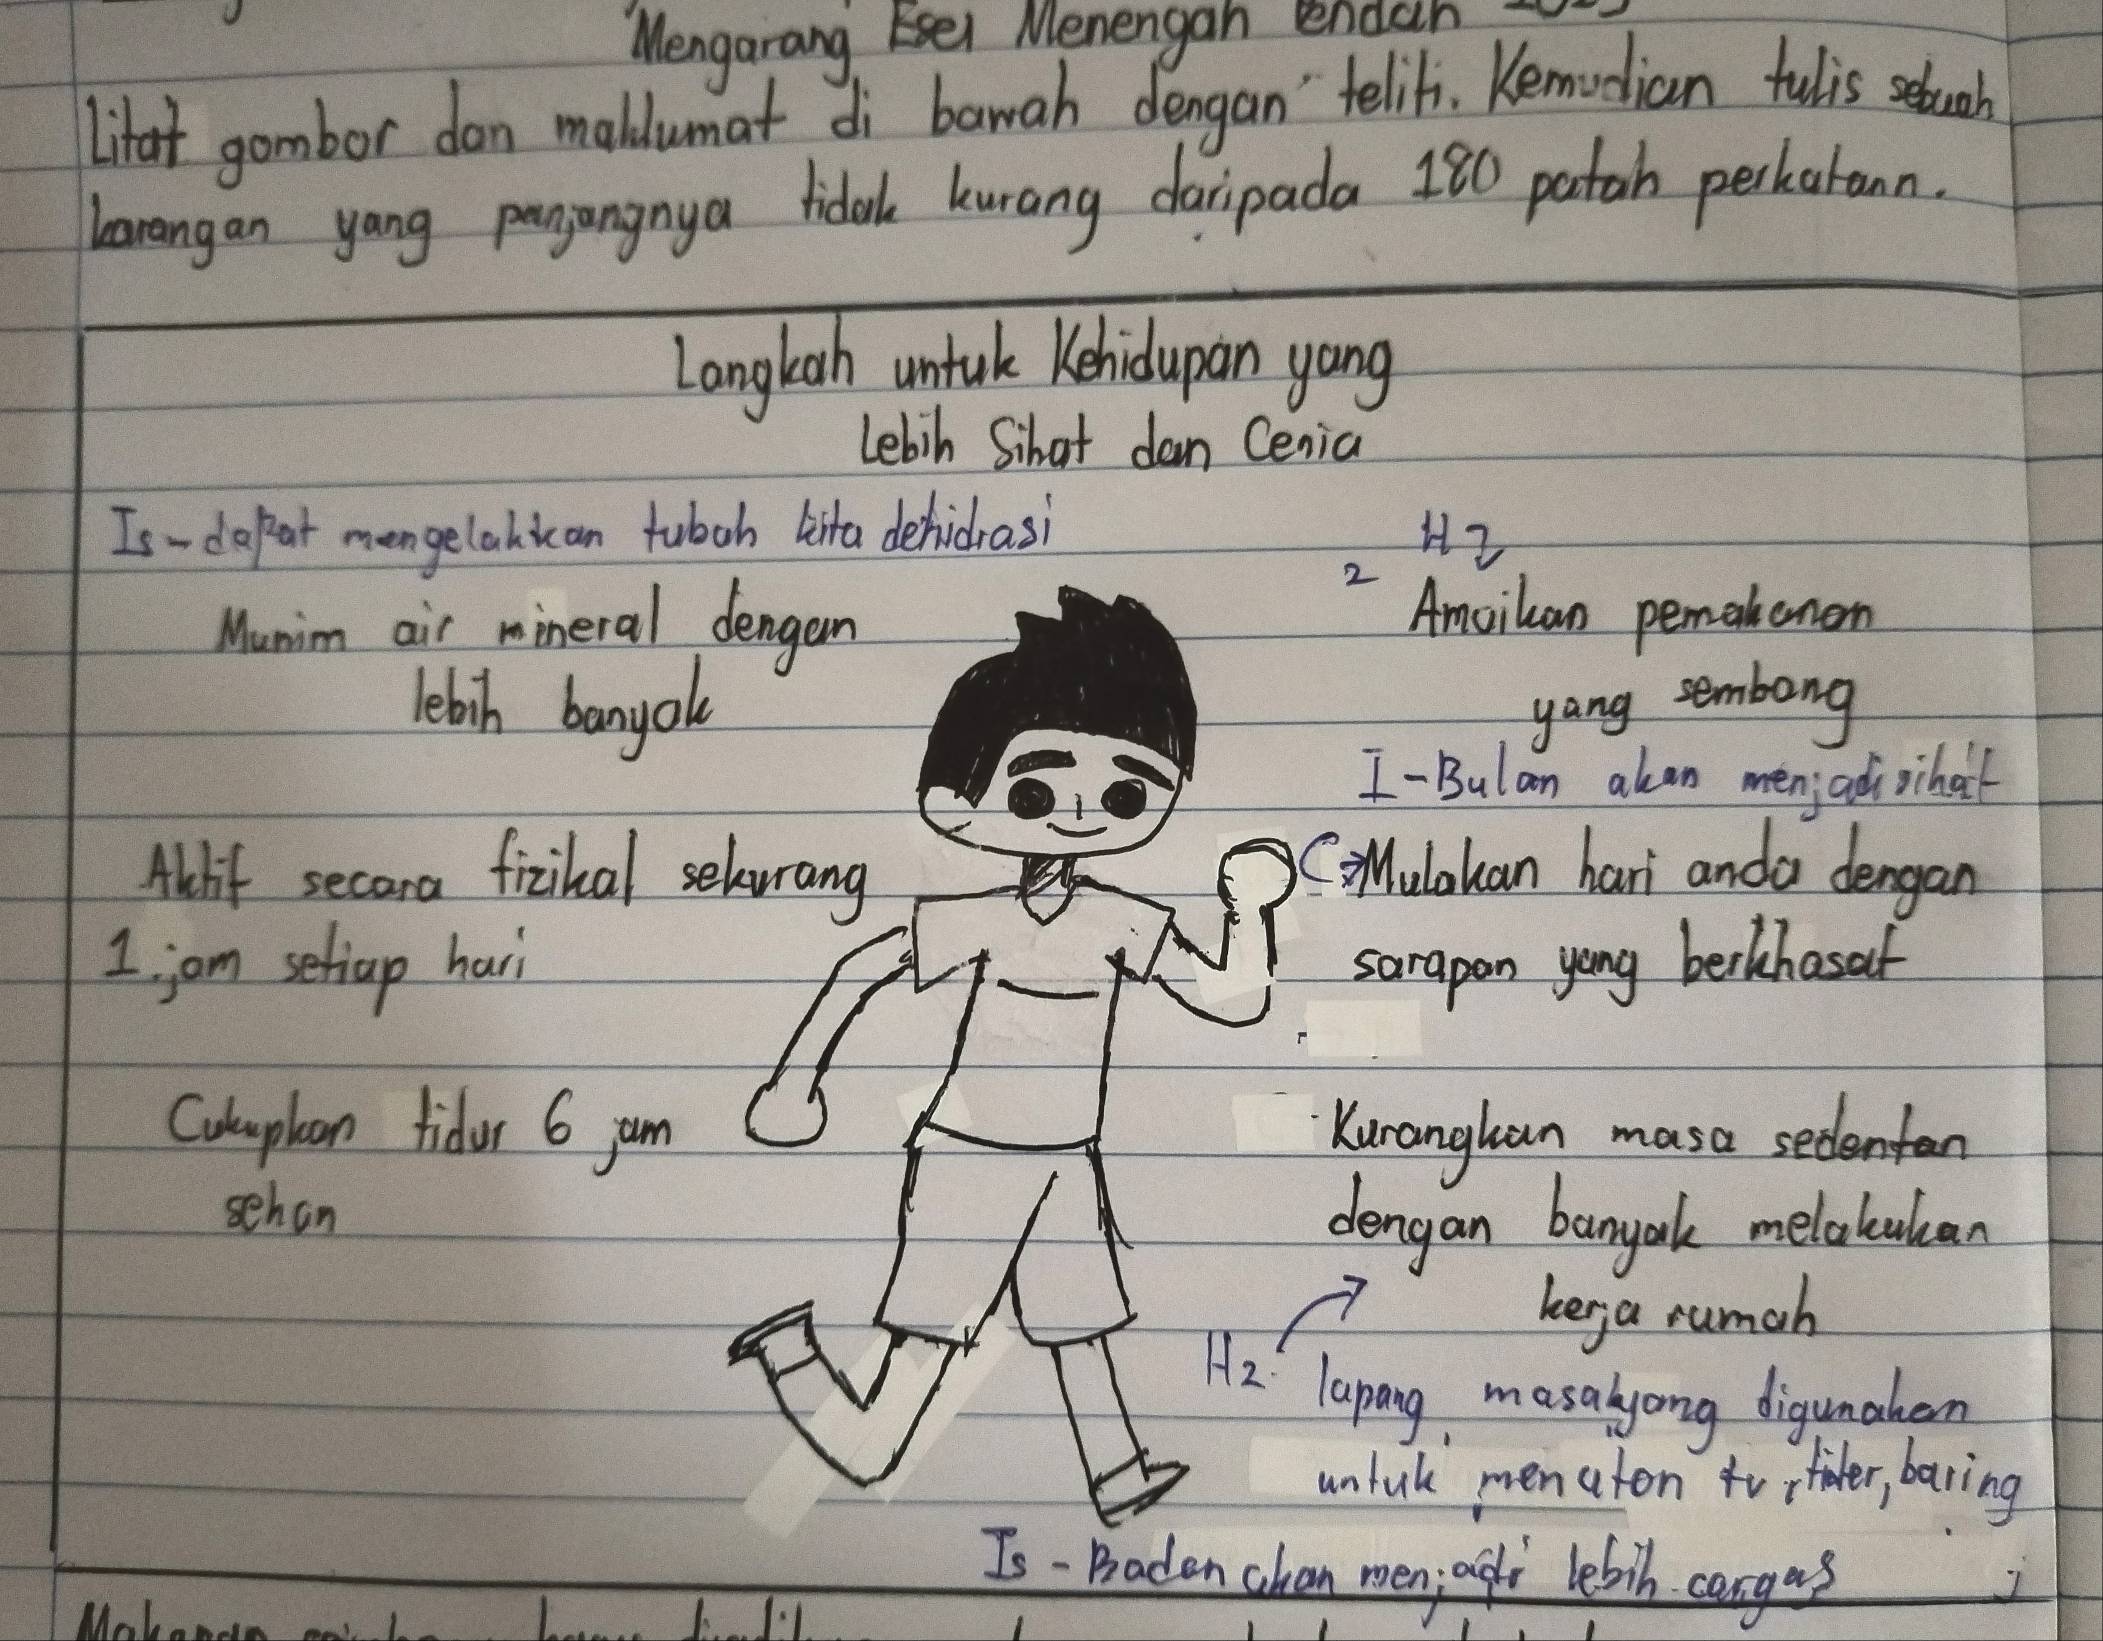 Mengarang Esei Menengah Rendah
Litat gambar dan maklumat di bawah dengan teliti. Kemudian tulis sebuah
karangan yang panjangnya tidak kurang daripada 180 patah perkataan.
Langkah untuk Kehidupan yang
Lebih Sihat dan Ceria
Is - dapat mengelakkan tubuh kita dehidrasi
Munim air mineral dengan
lebih banyak
H2
2 Amaikan pemakanan
yang sembang
I - Bulan akan menjadi sihat
Aktif secara fizikal sekurang
1 jam setiap hari
C → Mulakan hari anda dengan
sarapan yang berkhasat
Cukupkan tidur 6 jam
sehan
Kurangkan masa sedentan
dengan banyak melakukan
kerja rumah
H2. lapang masa yang digunakan
untuk menaton tv, baring
Is - Badan akan menjadi lebih cargas
Makanan